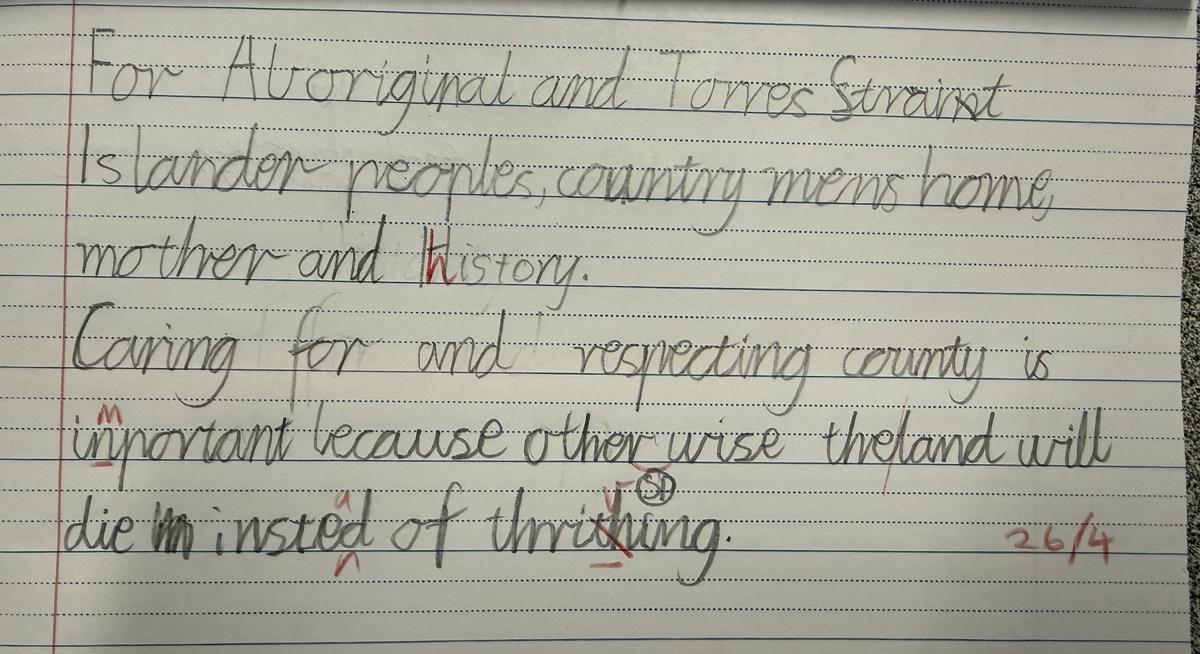 For Aboriginal and Torres Straint
Islander peoples, country mens home,
mother and history.
Caring for and respecting county is
m
inportant because other wise theland will
SP
a v
die insted of thrithing.
26/4